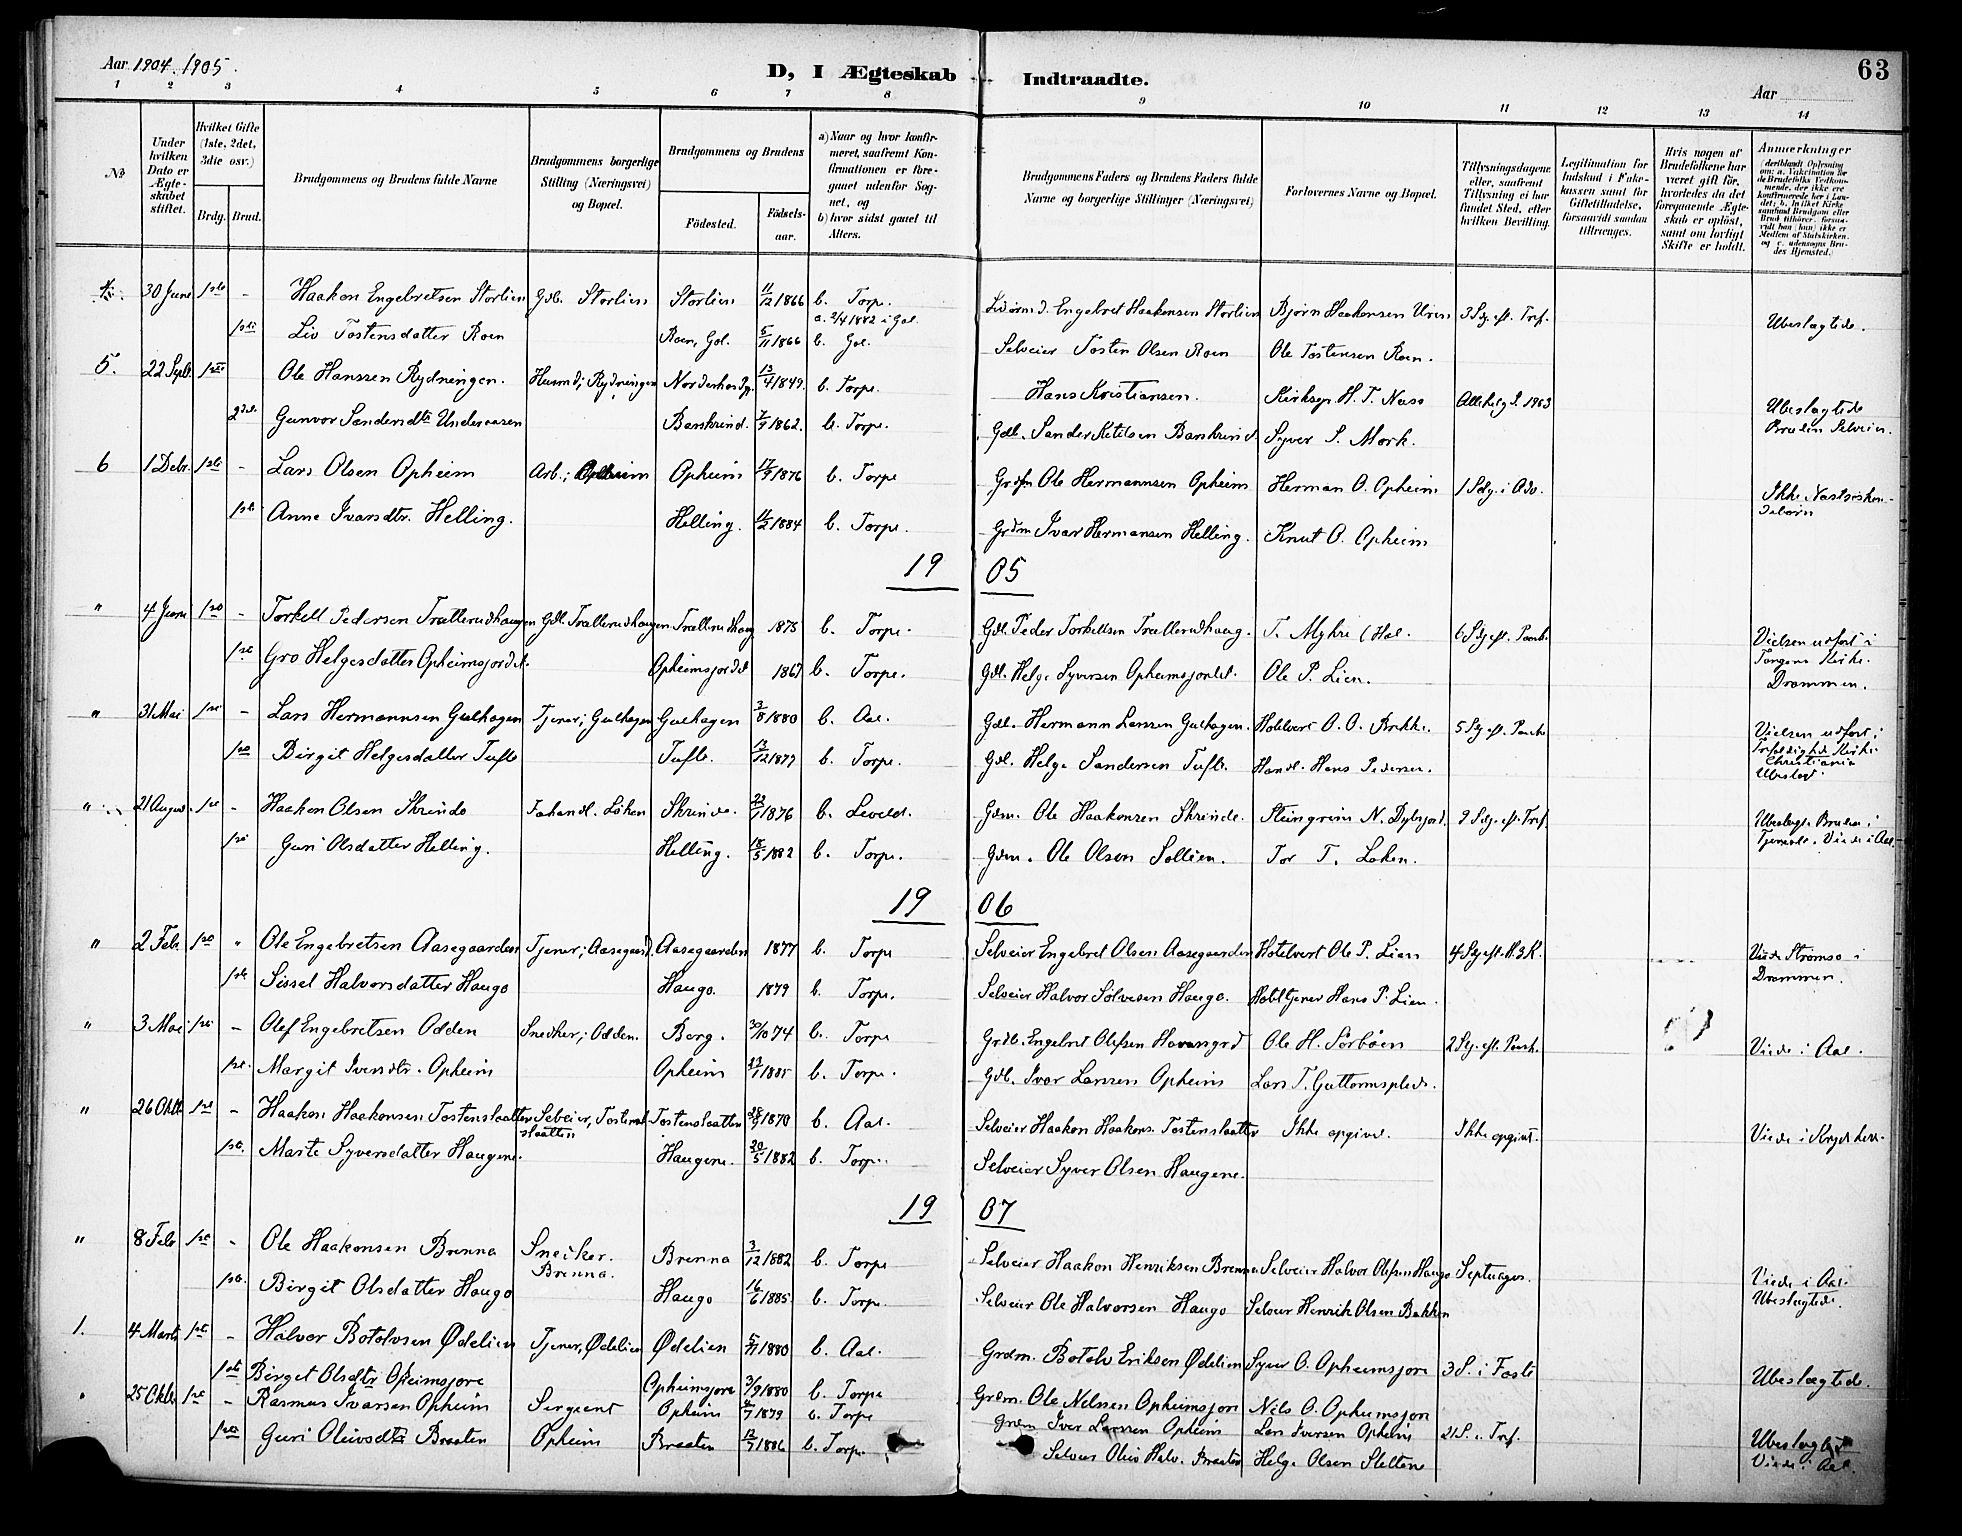 Aar 1904. 1905.
D, I Ægteskab Indtraadte.
63
Aar
1 2 3 4 5 6 7 8 9 10 11 12 13 14
No
Under hvilken Dato er Ægteskabet stiftet.
Hvilket Gifte (1ste, 2det, 3die osv.)
Brdg. Brud.
Brudgommens og Brudens fulde Navne
Brudgommens borgerlige Stilling (Næringsvei) og Bopæl.
Brudgommens og Brudens
Fødested.
Fødselsaar.
a) Naar og hvor konfirmeret, saafremt Konfirmationen er foregaaet udenfor Sognet, og
b) hvor sidst gaaet til Alters.
Brudgommens Faders og Brudens Faders fulde Navne og borgerlige Stillinger (Næringsvei)
Forlovernes Navne og Bopæl.
Tillysningsdagene eller, saafremt Tillysning ei har fundet Sted, efter hvilken Bevilling.
Legitimation for Indskud i Enkekassen samt for Giftetilladelse, forsaavidt saadan tiltrænges.
Hvis nogen af Brudefolkene har været gift før, hvorledes da det foregaaende Ægteskab er opløst, samt om lovligt Skifte er holdt.
Anmerkninger
(deriblandt Oplysning om: a. Vakcination for de Brudefolks Vedkommende, der ikke ere konfirmerede her i Landet; b. hvilket Kirkesamfund Brudgom eller Brud tilhører, forsaavidt han (hun) ikke er Medlem af Statskirken, og c. udensogns Brudes Hjemsted.)
30 Juni 1ste - Haakon Engebretsen Storlien Gdb. Storlien Storlien 11/12 1866 b. Torpe. Engebret Haakonsen Storlien Bjørn Haakonsen Uren 3 Sdg. eft. Tref.
1ste Liv Tostensdatter Roen Roen, Gol. 5/11 1866 a. 2/4 1882 i Gol. b. Gol. Selveier Tosten Olsen Roen Ole Tostensen Roen. Ubeslægtede.
5. 22 Sept. 1ste Ole Hanssen Rydningen. Husmd; Rydningen 13/4 1849. b. Torpe. Hans Kristiansen. Kirkesgr. H. T. Næss 1903
2det Gunvor Sandersdtr Underaasen Banskrind. 7/9 1862. b. Torpe. Gdb. Sander Ketilsen Banskrind. Syver S. Mork. Ubeslægtede Bruden Selveier.
6 1 Debr. 1ste - Lars Olsen Opheim Arb; Opheim Opheim 17/9 1876 b. Torpe Grdm Ole Hermannsen Opheim Herman O. Opheim 1 Sdg. i Adv.
1ste Anne Ivarsdtr. Helling. Helling. 11/2 1884 b. Torpe. Grdm Ivar Hermansen Helling. Knut O. Opheim Ikke
1905
" 4 Juni 1ste - Torkell Pedersen Trællerudhaugen Gdb. Trællerudhaugen Trællerudhaug 1875 b. Torpe. Gdb. Peder Torkellsen Trællerudhaug. T. Myhre (Hol. 6 Sdg. eft. Paask.
1ste Gro Helgesdatter Opheimsjordet. Opheimsjordet 1867 b. Torpe. Gdb. Helge Syversen Opheimsjordet. Ole P. Lien. Vielsen udført i Tangens Kirke. Drammen.
" 31 Mai 1ste - Lars Hermannsen Gulhagen Tjener; Gulhagen Gulhagen 3/8 1880 b. Aal. Gdb. Hermann Larssen Gulhagen. Hotelvert O. O. Brekke. 5 Sdg. eft. Paask.
1ste Birgit Helgesdatter Tufte Tufte. 13/12 1879 b. Torpe. Gdb. Helge Sandersen Tufte. Handl. Hans Pedersen. Vielsen udført i Trefoldighed. Kirke. Christiania Ubesl.
" 21 August. 1ste - Haakon Olsen Skrinde Fahandl. Løken Skrinde. 22/7 1876 b. Leveld. Gdm. Ole Haakonsen Skrinde. Steingrim N. Dybjord. 9 Sdg. eft. Tref.
1ste Guri Olsdatter Helling. Helling. 18/5 1882 b. Torpe. Gdm. Ole Olsen Sollien. Tor T. Løken. Ubeslægt. Bruden i Tjeneste. Viede i Aal.
1906
" 2 Feb. 1ste " Ole Engebretsen Aasegaarden Tjener; Aasegaard. Aasegaarden 1877 b. Torpe Selveier Engebret Olsen Aasegaarden Hotelvert Ole P. Lien 4 Sdg. eft. H. 3 K.
1ste Sissel Halvorsdatter Haugo Haugo. 1879 b. Torpe. Selveier Halvor Solvesen Haugo. Hoteltjener Hans P. Lien. Viede Strømsø i Drammen.
" 3 Mai 1ste - Olef Engebretsen Odden Snedker; Odden. Borg. 30/10 74 b. Torpe Grdb. Engebret Olefsen Ole H. Sørbøen 2 Sdg. eft. Paask. Viede i Aal.
1ste. Margit Iversdtr. Opheim Opheim 23/1 1885 b. Torpe. Gdb. Ivar Larssen Opheim Lars T. Guttormsplads.
" 26 Oktb 1ste - Haakon Haakonsen Tostenslaatten Selveier, Tostenslaatten Tostenslaatten 28/9 1870 b. Aal. Selveier Haakon Haakons. Tostenslaatten Ikke opgivet. Ikke opgivet. Viede i
1ste. Marte Syversdatter Haugene. Haugene. 20/5 1882 b. Torpe. Selveier Syver Olsen Haugene.
1907
" 8 Feb 1ste - Ole Haakonsen Brenna Snedker. Brenna. Brenna 3/12 1882 b. Torpe Selveier Haakon Henriksen Brenna Selveier Halvor Olefsen Haugo Septuages.
1ste. Birgit Olsdatter Haugo Haugo 16/6 1885 b. Torpe. Selveier Ole Halvorsen Haugo Selveier Henrik Olsen Bakken Viede i Aal. Ubeslægtede.
1. 4 Marts 1ste - Halvor Botolvsen Ødelien Tjener, Ødelien Ødelien 5/11 1880 b. Aal. Grdm. Botolv Eriksen Ødelien Syver O. Opheimsjore 3 S. i Faste
1ste Birget Olsdtr Opheimsjore Opheimsjore 3/9 1880 b. Torpe Grdm. Ole Nelssen Opheimsjore Nils O. Opheimsjore Ubeslægtede.
" 25 Oktb 1ste - Rasmus Ivarsen Opheim Sergeant Opheim 1879 b. Torpe Grdm Iver Larssen Opheim Lars Iversen Opheim 21 S. e. Tref.
1ste Guri Oleivsdtr Braaten Opheim Braaten 12/7 1886 b. Torpe. Selveier Oleiv Halv. Braaten Helge Olsen Slettene Ubeslægtede Viede i Aal.